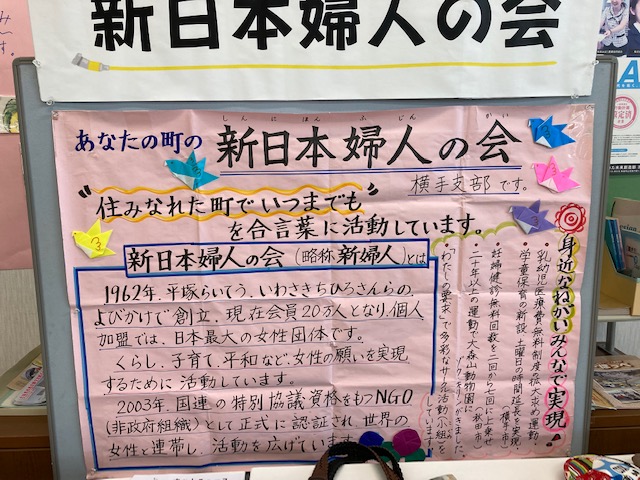 新日本婦人の会
あなたの町の
しんにほんふじんのかい
新日本婦人の会
横手支部です。
"住みなれた町でいつまでも"
を合言葉に活動しています。
新日本婦人の会(略称新婦人)とは
1962年、平塚らいてう、いわさきちひろさんらの
よびかけで創立、現在会員20万人となり、個人
加盟では、日本最大の女性団体です。
くらし、子育て、平和など、女性の願いを実現
するために活動しています。
2003年、国連の特別協議資格をもつNGO
(非政府組織)として正式に認証され、世界の
女性と連帯し、活動を広げています
身近なねがいみんなで実現!
・乳幼児医療費無料制度の拡大求め運動
・学童保育の新設、土曜日の時間延長を実現
(横手市)
・妊婦健診無料回数を二回から
(秋田市)
・二十年以上の運動で大森山動物園に
・"わたしの要求"で多彩なサークル活動(小組)を
しています